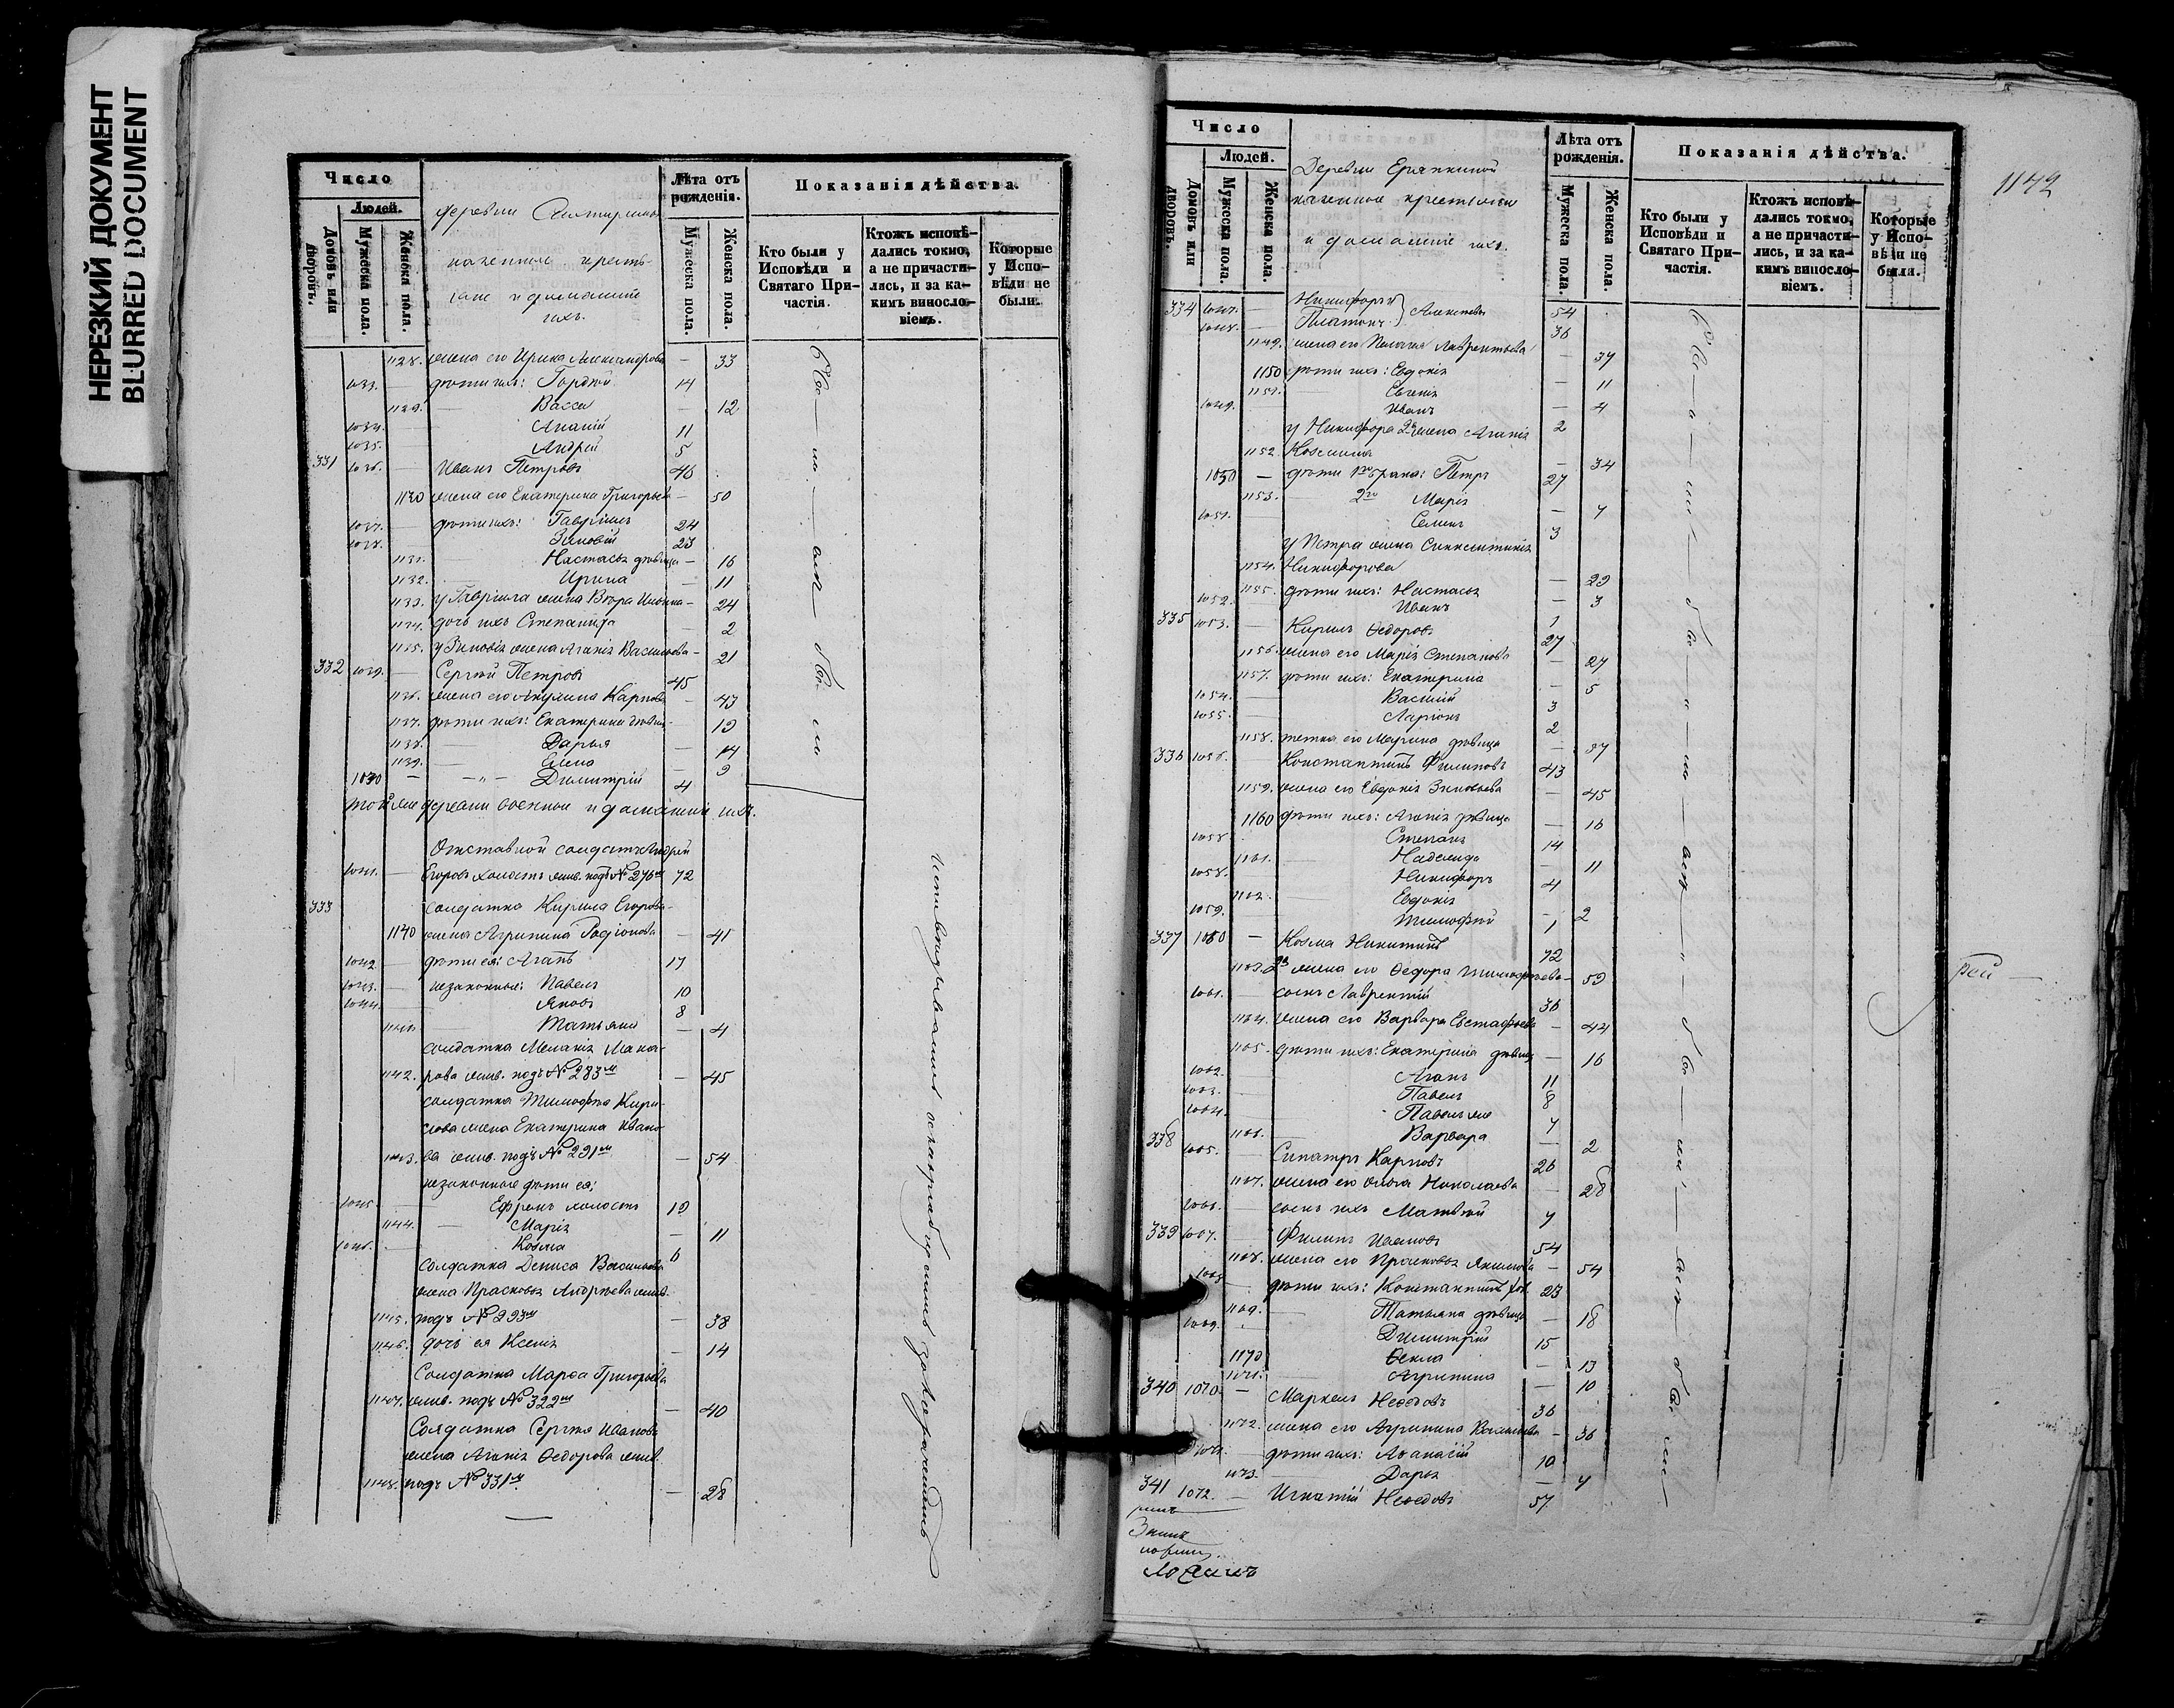 НЕРЕЗКИЙ ДОКУМЕНТ
BLURRED DOCUMENT
Число
Людей.
Домовъ или дворовъ.
Мужеска пола.
Женска пола.
деревни
казенные кресть-
яне и домашніе
ихъ.
Лѣта отъ рожденія.
Мужеска пола.
Женска пола.
Показанія дѣйства.
Кто были у Исповѣди и Святаго При-частія.
Ктожъ исповѣ-дались токмо, а не причасти-лись, и за ка-кимъ винословіемъ.
Которые у Испо-вѣди не были.
1128. жена его Ирина Александрова — 33
1033. — дѣти ихъ: Гордѣй 14
1129. — Васса — 12
1034. Ананій 11
1035. Андрей 5
331 1036. — Иванъ Петровъ 46
1130 жена его Екатерина Григорьева — 50
1037. — дѣти ихъ: Гавріилъ 24
1038. Зиновій 23
1131. — Настасья дѣвица — 16
1132. Ирина — 11
1133. у Гавріила жена Вѣра Ильина — 24
1134. дочь ихъ Степанида — 2
1135. у Зиновія жена Агапія Васильева — 21
332 1039. — Сергѣй Петровъ 45
1136. жена его Акулина Карпова — 43
1137. дѣти ихъ: Екатерина дѣвица — 19
1138. — Дарья — 14
1139. — Елена — 9
1040 — — " — Димитрій 4
той же деревни военные и домашніе ихъ.
Отставной солдатъ Андрей
1041. — Егоровъ холостъ жив. подъ № 276м 72
333 солдатка Кирила Егорова
1140 жена Агрипина Родіонова — 41
1042 — дѣти ея: Агапъ 17
1043. — незаконные: Павелъ 10
1044. — Яковъ 8
1141. — Татьяна — 4
солдатка Меланія Мака-
1142. рова жив. подъ № 283м — 45
солдатка Тимофея Кири-
лова жена Екатерина Ивано-
1143. ва жив. подъ № 291м — 54
незаконные дѣти ея:
1045. — Ефремъ холостъ 19
1144. — Марія — 11
1046. — Козма 6
Солдатка Дениса Васильева
жена Прасковья Андреева жив.
1145. подъ № 293м — 38
1146. дочь ея Ксенія — 14
Солдатка Марѳа Григорьева
1147. жив. подъ № 322м — 40
Солдатка Сергѣя Иванова
жена Агапія Ѳедорова жив.
1148. подъ № 331м — 28
1142
Число
Людей.
Домовъ или дворовъ.
Мужеска пола.
Женска пола.
Деревни
казенные крестьяне
и домашніе ихъ.
Лѣта отъ рожденія.
Мужеска пола.
Женска пола.
Показанія дѣйства.
Кто были у Исповѣди и Святаго При-частія.
Ктожъ исповѣ-дались токмо, а не причасти-лись, и за ка-кимъ винословіемъ.
Которые у Испо-вѣди не были.
334 1047. — Никифоръ } Алексѣевы 54
1048. — Платонъ 36
1149. жена его Пелагея Лаврентьева — 37
1150 дѣти ихъ: Евдокія — 11
1151. — Евгенія — 4
1049. — Иванъ 2
у Никифора 2я жена Агапія
1152. Козмина — 34
1050 — дѣти 1го брака: Петръ 27
1153. — 2го Марія — 7
1051. Семенъ 3
у Петра жена Синклитикія
1154. Никифорова — 29
1155. дѣти ихъ: Настасья — 3
1052. — Иванъ 1
335 1053. — Кирилъ Ѳедоровъ 27
1156. жена его Марія Степанова — 27
1157. дѣти ихъ: Екатерина — 5
1054. — Василій 3
1055. — Ларіонъ 2
1158. тетка его Марина дѣвица — 37
336 1056. Константинъ Филиповъ 43
1159. жена его Евдокія Зиновьева — 45
1160 дѣти ихъ: Агапія дѣвица — 16
1058. Степанъ 14
1161. — Надежда — 11
1058. Никифоръ 4
1162. Евдокія — 2
1059. Тимофей 1
337 1060 — Козма Никитинъ 72
1163. 2я жена его Ѳедора Тимофеева — 59
1061. — сынъ Лаврентій 36
1164. жена его Варвара Евстафьева — 44
1165. дѣти ихъ: Екатерина дѣвица — 16
1062. — Агапъ 11
1063. — Павелъ 8
1064. — Павелъ же 7
1166. — Варвара — 2
338 1065. — Сипатръ Карповъ 26
1167. жена его Ольга Николаева — 28
1066. — сынъ ихъ Матвѣй 7
339 1067. — Филипъ Ивановъ 54
1168. жена его Прасковья Якимова — 54
1068 — дѣти ихъ: Константинъ хол. 23
1169. — Татьяна дѣвица — 18
1069. Димитрій 15
1170 Ѳекла — 13
1171. Агрипина — 10
340 1070 — Маркелъ Неѳедовъ 36
1172. жена его Агрипина Васильева — 36
1071. — дѣти ихъ: Аѳанасій 10
1173. Дарья — 7
341 1072. — Игнатій Неѳедовъ 57
рей